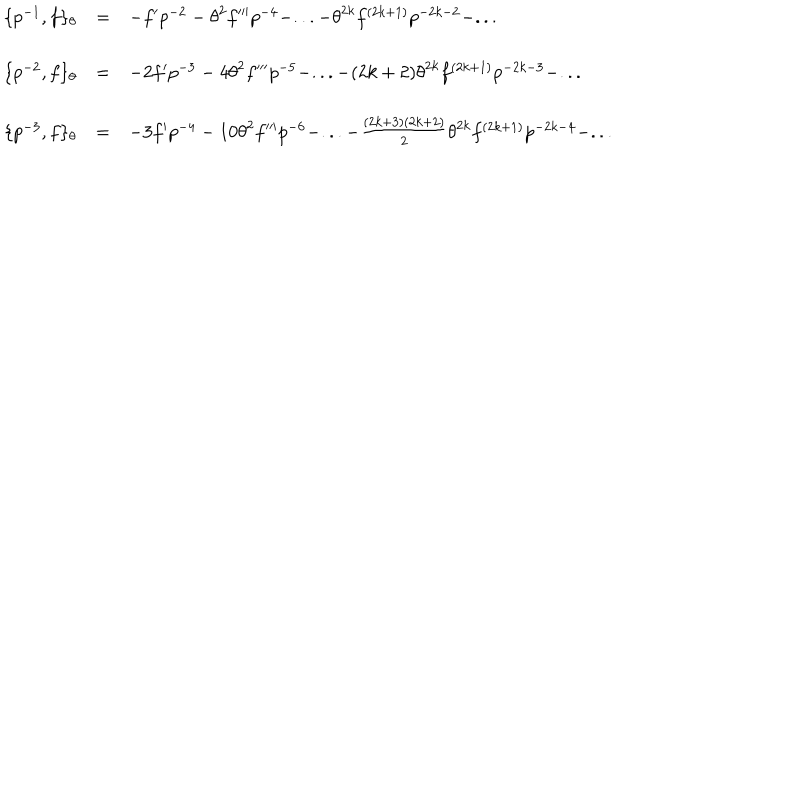 $\{p^{-1}, f\}_\theta = -f' p^{-2} - \theta^2 f''' p^{-4} - ... - \theta^{2k} f^{(2k+1)} p^{-2k-2} - ...$
$\{p^{-2}, f\}_\theta = -2f' p^{-3} - 4\theta^2 f''' p^{-5} - ... - (2k+2)\theta^{2k} f^{(2k+1)} p^{-2k-3} - ...$
$\{p^{-3}, f\}_\theta = -3f' p^{-4} - 10\theta^2 f''' p^{-6} - ... - \frac{(2k+3)(2k+2)}{2} \theta^{2k} f^{(2k+1)} p^{-2k-4} - ...$